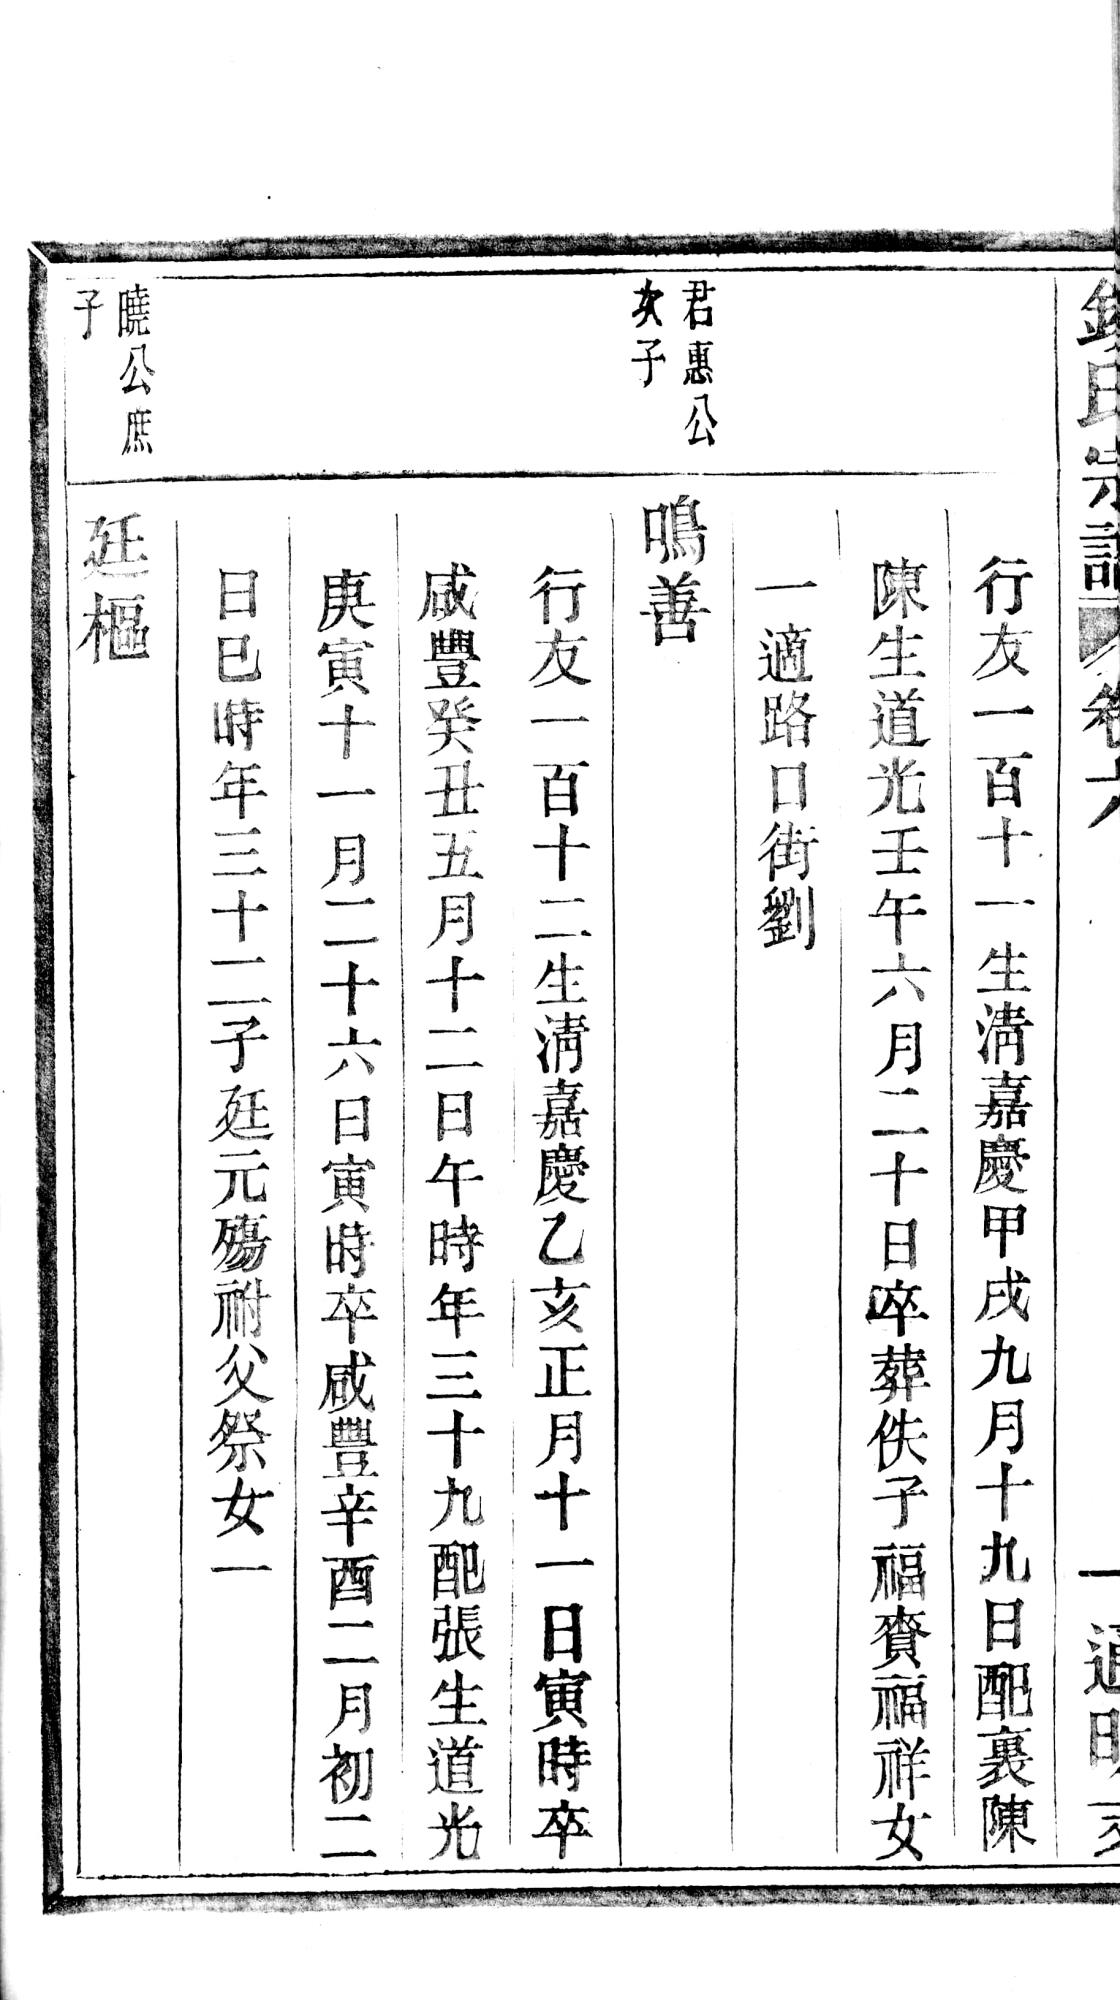 錢氏宗譜 卷六 一 通明支
行友一百十一生淸嘉慶甲戌九月十九日配裏陳
陳生道光壬午六月二十日卒葬佚子福賚福祥女
一適路口街劉
君惠公
次子
鳴善
行友一百十二生淸嘉慶乙亥正月十一日寅時卒
咸豐癸丑五月十二日午時年三十九配張生道光
庚寅十一月二十六日寅時卒咸豐辛酉二月初二
日巳時年三十二子廷元殤祔父祭女一
曉公庶
子
廷樞